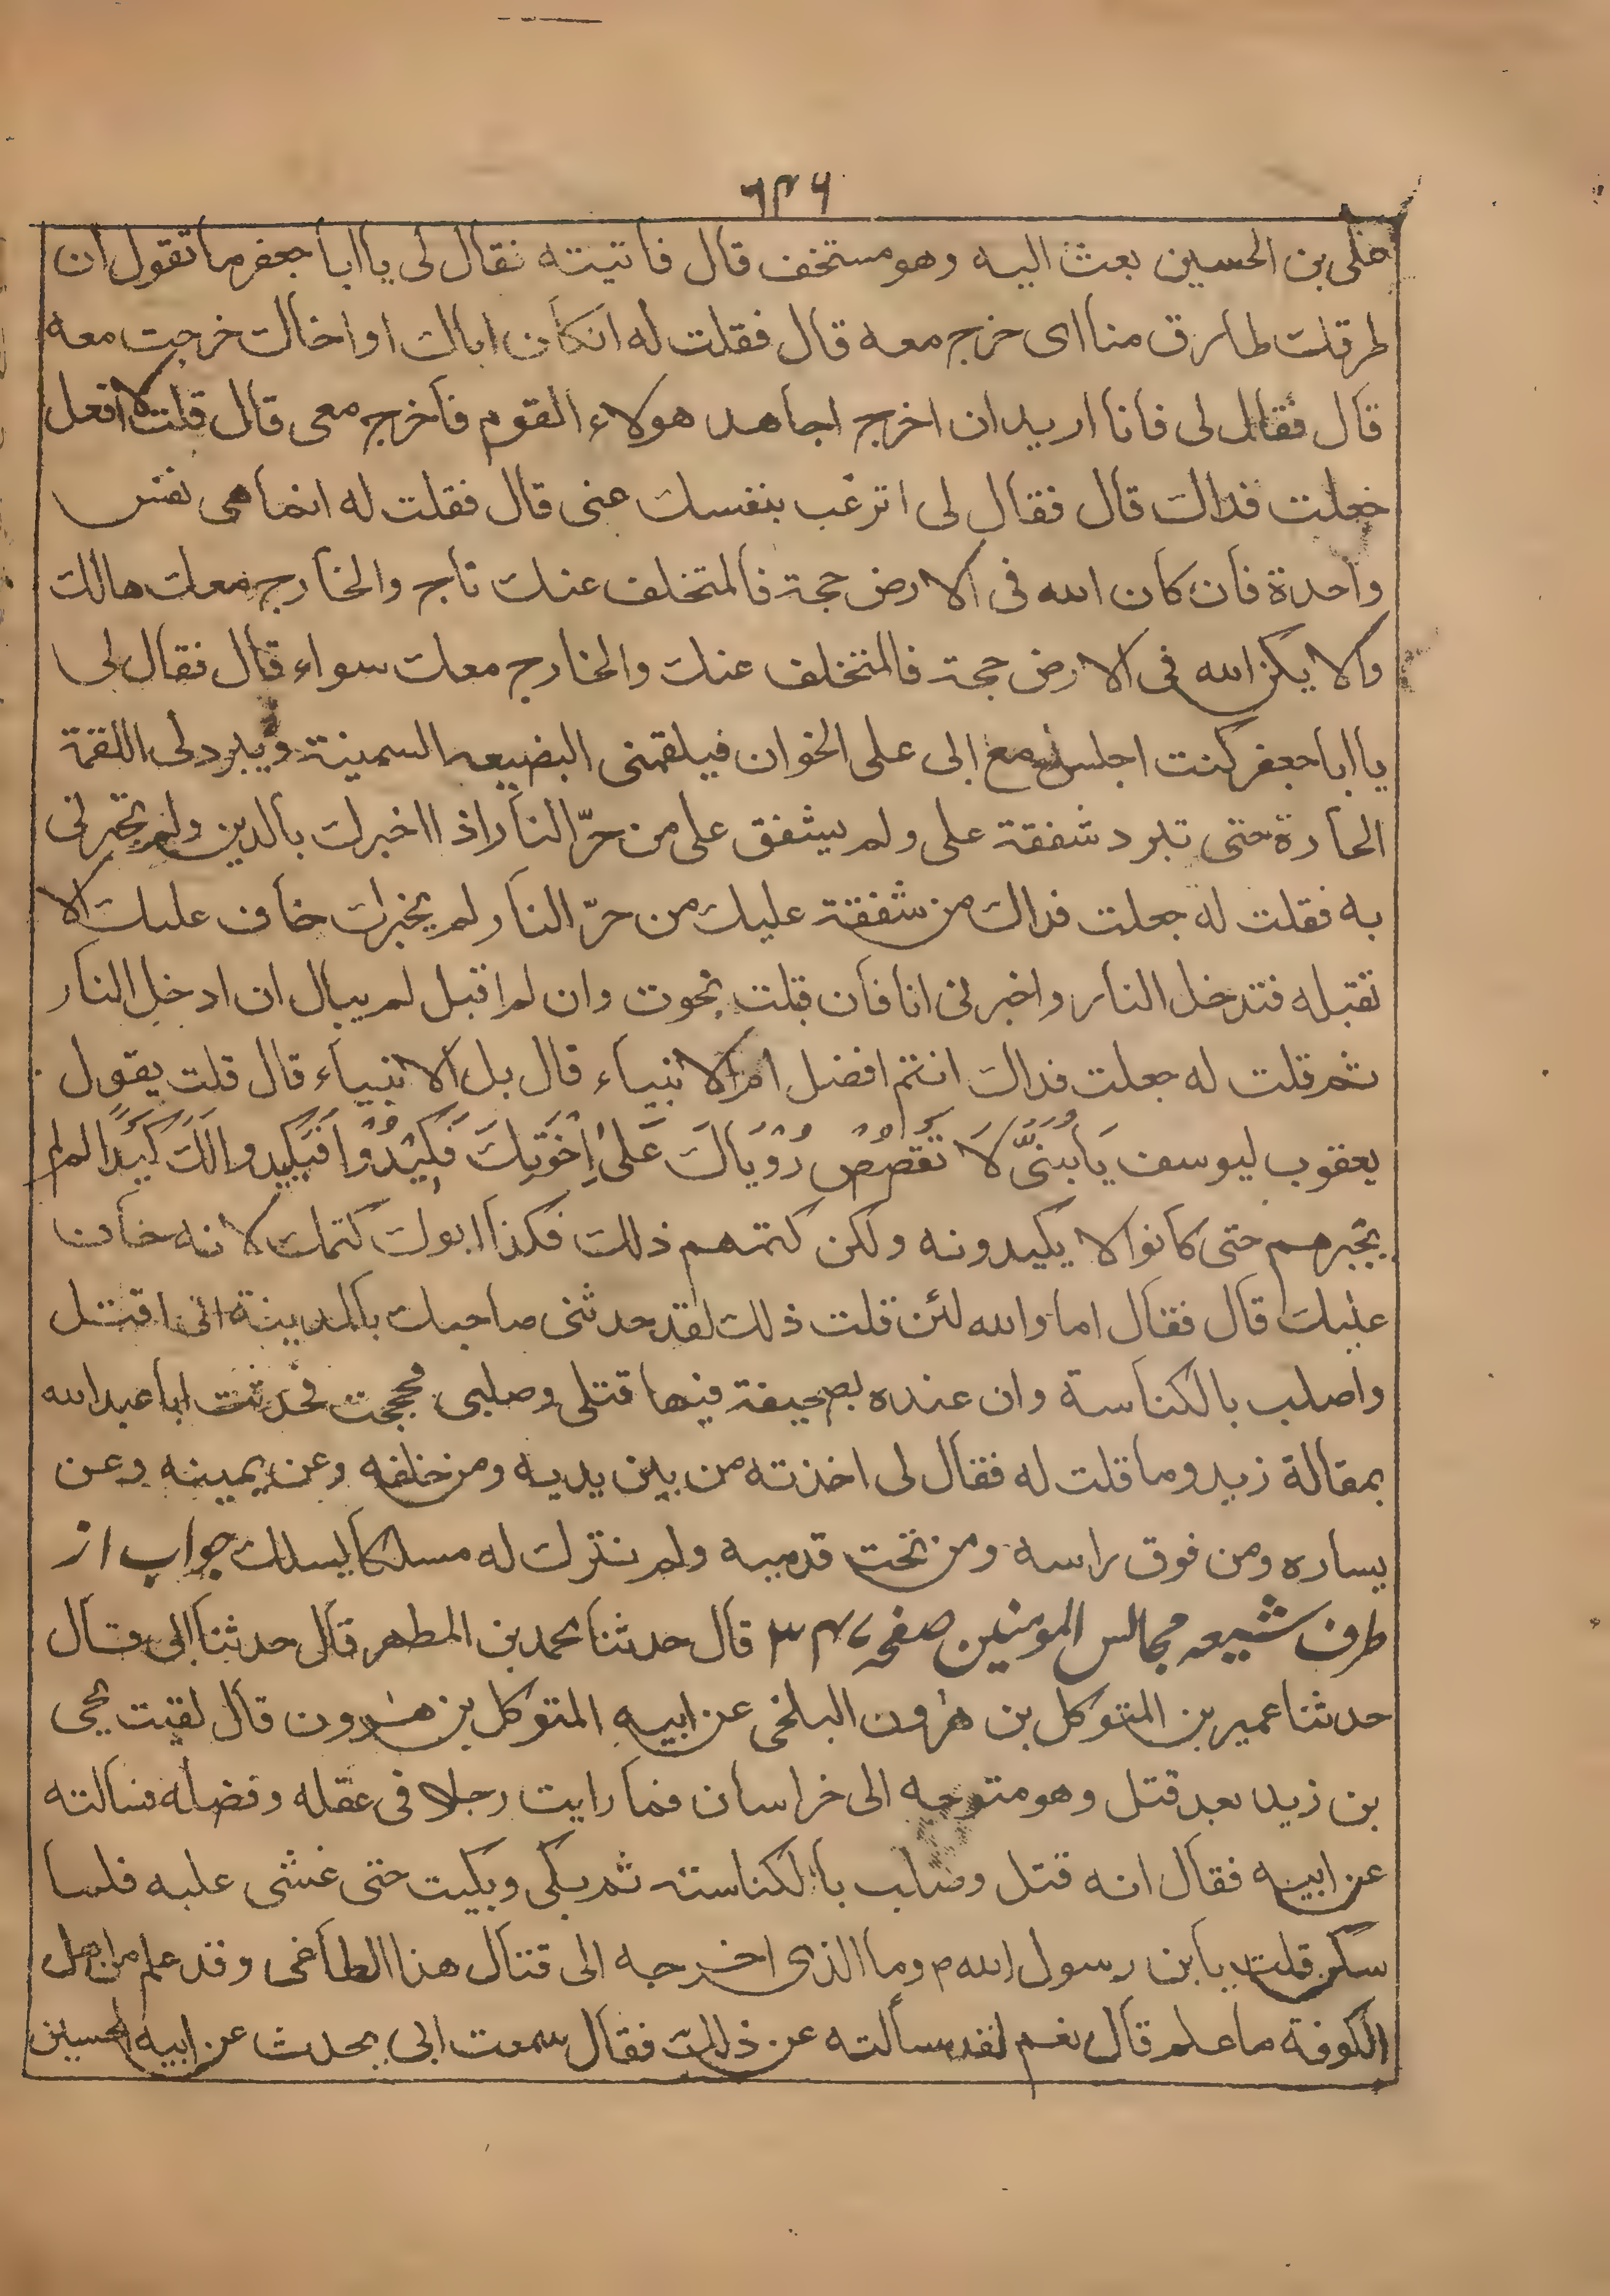 ٦٣٦
علی بن الحسین بعث الیه وهو مستخف قال فاتیته فقال لی یا ابا جعفر ما تقول ان
طرقك طارق منا ای خرج معه قال فقلت له انکان اباك او اخاك خرجت معه
قال فقال لی فانا ارید ان اخرج اجاهد هولاء القوم فاخرج معی قال قلت لا افعل
جعلت فداك قال فقال لی اترغب بنفسك عنی قال فقلت له انما هی نفس
واحدة فان کان الله فی الارض حجة فالمتخلف عنك ناج والخارج معك هالك
والا یکن الله فی الارض حجة فالمتخلف عنك والخارج معك سواء قال فقال لی
یا ابا جعفر کنت اجلس مع ابی علی الخوان فیلقمنی البضیعه السمینة ویبرد لی اللقمة
الحارة حتی تبرد شفقة علی ولم یشفق علی من حرّ النار اذا اخبرك بالدین ولم یخبرنی
به فقلت له جعلت فداك من شفقة علیك من حرّ النار ولم یخبرك خاف علیك الا
تقبله فتدخل النار واخبرنی انا فان قبلت نجوت وان لم اقبل لم یبال ان ادخل النار
ثم قلت له جعلت فداك انتم افضل ام الانبیاء قال بل الانبیاء قال قلت یقول
یعقوب لیوسف یَابُنَیَّ لَا تَقْصُصْ رُوْیَاكَ عَلیٰ اِخْوَتِكَ فَیَکِیْدُوْا فَیَکِیدُوا لَكَ کَیْدًا لم لم
یخبرهم حتی کانوا لا یکیدونه ولکن کتمهم ذلك فکذا ابوك کتمك لانه خاف
علیك قال فقال اما والله لئن قلت ذلك لقد حدثنی صاحبك بالمدینة انی اقتل
واصلب بالکناسة وان عنده بصحیفة فیها قتلی وصلبی فحججت فحدثت ابا عبد الله
بمقالة زید وما قلت له فقال لی اخذته من بین یدیه ومن خلفه وعن یمینه وعن
یساره ومن فوق راسه ومن تحت قدمیه ولم نترك له مسلکا یسلك جواب از
طرف شیعه مجالس المومنین صفحه ٣٤٧ قال حدثنا محمد بن المطهر قال حدثنا ابی قال
حدثنا عمیر بن المتوکل بن هٰرون البلخی عن ابیه المتوکل بن هٰرون قال لقیت یحیی
بن زید بعد قتل وهو متوجه الی خراسان فما رایت رجلا فی عقله وفضله فسالته
عن ابیه فقال انه قتل وصلب بالکناسة ثم بکی وبکیت حتی غشی علیه فلما
سکن قلت یا بن رسول الله م وما الذی اخرجه الی قتال هذا الطاغی وقد علم من اهل
الکوفة ما علم قال نعم لقد سألته عن ذلك فقال سمعت ابی یحدث عن ابیه الحسین